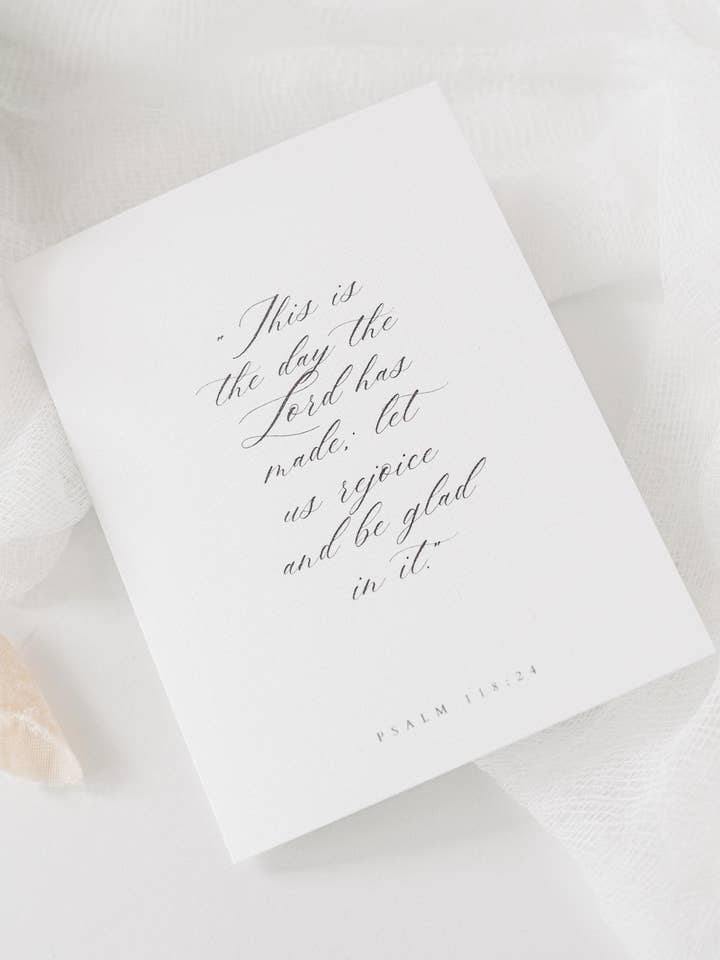 "This is
the day the
Lord has
made; let
us rejoice
and be glad
in it."
PSALM 118:24